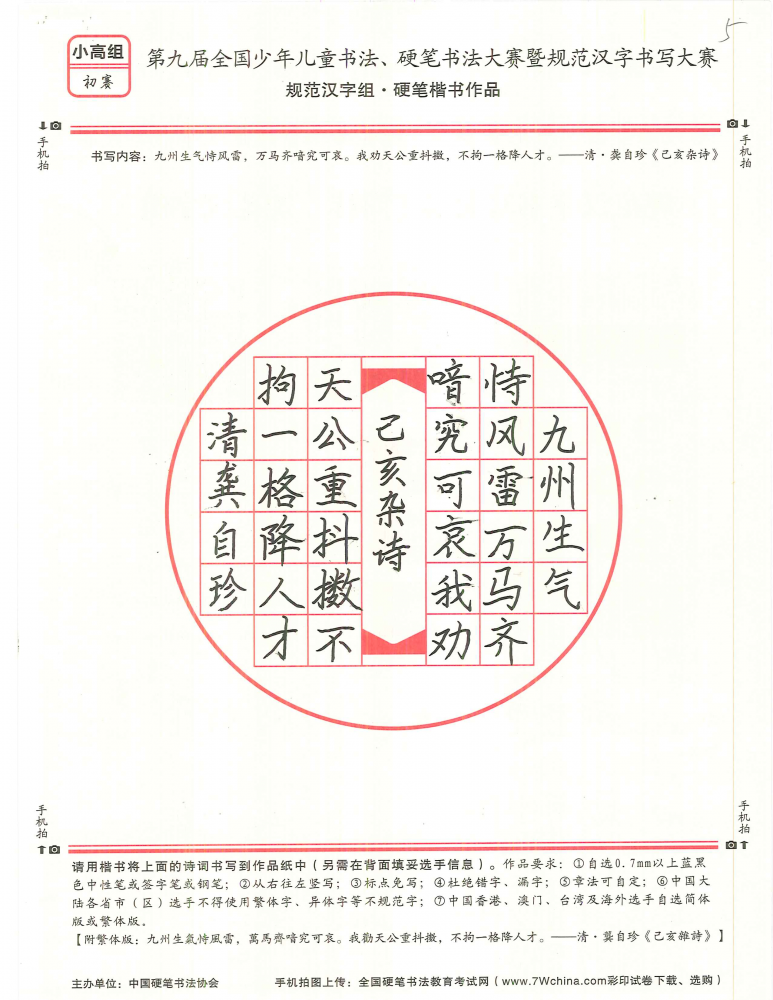 小高组
初赛
5
第九届全国少年儿童书法、硬笔书法大赛暨规范汉字书写大赛
规范汉字组·硬笔楷书作品
手机拍
手机拍
书写内容：九州生气恃风雷，万马齐喑究可哀。我劝天公重抖擞，不拘一格降人才。——清·龚自珍《己亥杂诗》
九州生气
恃风雷万马齐
喑究可哀我劝
己亥杂诗
天公重抖擞不
拘一格降人才
清龚自珍
手机拍
手机拍
请用楷书将上面的诗词书写到作品纸中（另需在背面填妥选手信息）。作品要求：①自选0.7mm以上蓝黑
色中性笔或签字笔或钢笔；②从右往左竖写；③标点免写；④杜绝错字、漏字；⑤章法可自定；⑥中国大
陆各省市（区）选手不得使用繁体字、异体字等不规范字；⑦中国香港、澳门、台湾及海外选手自选简体
版或繁体版。
【附繁体版：九州生氣恃風雷，萬馬齊喑究可哀。我勸天公重抖擻，不拘一格降人才。——清·龔自珍《己亥雜詩》】
主办单位：中国硬笔书法协会
手机拍图上传：全国硬笔书法教育考试网（www.7Wchina.com彩印试卷下载、选购）